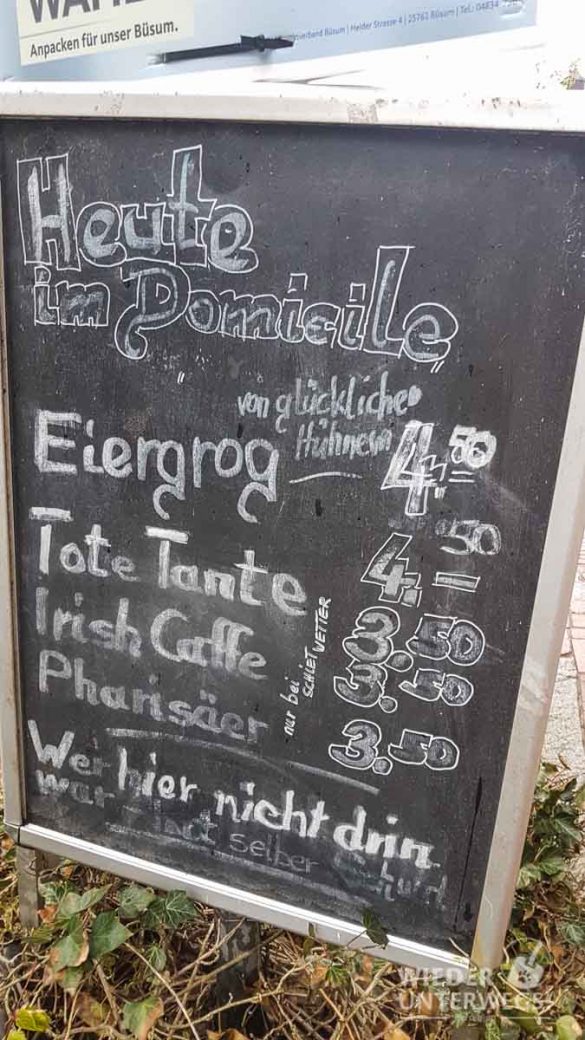 Anpacken für unser Büsum.
Büsum | Heider Strasse 4 | 25761 Büsum | Tel.: 04834
Heute
im Domicile
von glücklichen
Hühnern
Eiergrog 4.50
Tote Tante 4.50
Irish Caffe 3.50
3.50
Pharisäer 3.50
nur bei
SCHIETWETTER
Wer hier nicht drin
war hat selber Schuld
WIEDER
UNTERWEGS